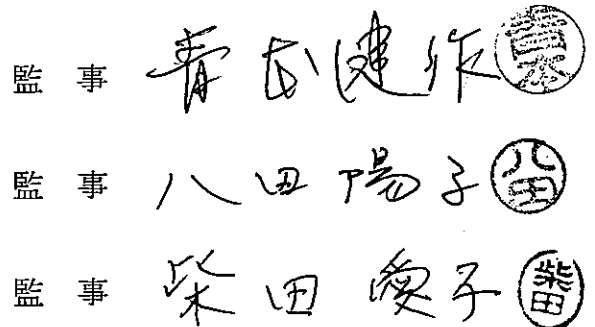 監事 青本健作 青本
監事 八田陽子 八田
監事 柴田愛子 柴田